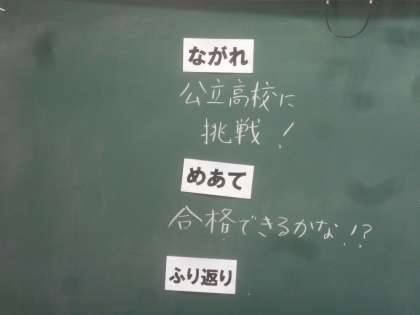 ながれ
公立高校に
挑戦！
めあて
合格できるかな!?
ふり返り